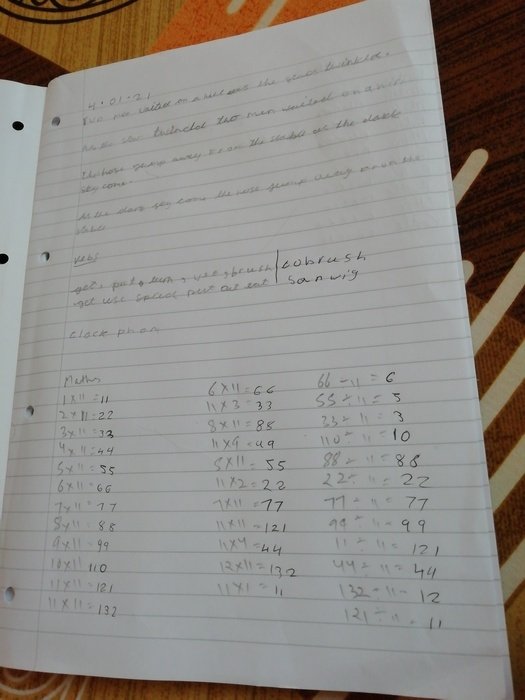 4.01.21
men on a hill as the stars twinkled.
As the star twinkled two men waited on a
the hose jump away from the as the dark
sky come.
As the dark sky come the hose jump away from the
Vebs
get, put, , use, brush
get use spread put cut eat
tobrush
sanwig
clock phon
Maths
1x11=11
2x11=22
3x11=33
4x11=44
5x11=55
6x11=66
7x11=77
8x11=88
9x11=99
10x11 110
11x11=121
11x11=132
6x11=66
11x3=33
8x11=88
11x9=49
5x11=55
11x2=22
7x11=77
11x11=121
11x4=44
12x11=132
11x1=11
66÷11=6
55÷11=5
33÷11=3
110÷11=10
88÷11=88
22÷11=22
77÷11=77
99÷11=99
11÷11=121
44÷11=44
132÷11=12
121÷11=11